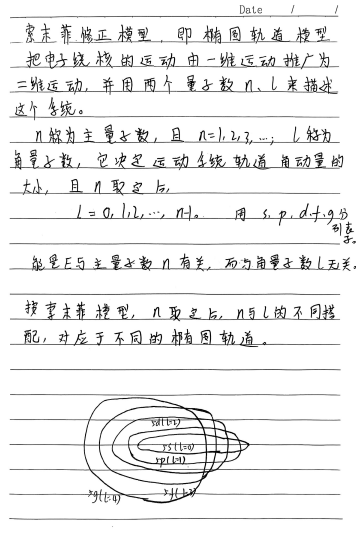 Date / /
索末菲修正模型，即椭圆轨道模型
把电子绕核的运动由一维运动推广为
二维运动，并用两个量子数n、l来描述
这个系统。
n称为主量子数，且n=1,2,3,…；l称为
角量子数，它决定运动系统轨道角动量的
大小，且n取定后，
l=0,1,2,…,n-1。 用s.p.d.f.g分
别表示。
能量E与主量子数n有关，而与角量子数l无关。
按索末菲模型，n取定后，n与l的不同搭
配，对应于不同的椭圆轨道。
5d(l=2)
5s(l=0)
5p(l=1)
5g(l=4) 5f(l=3)